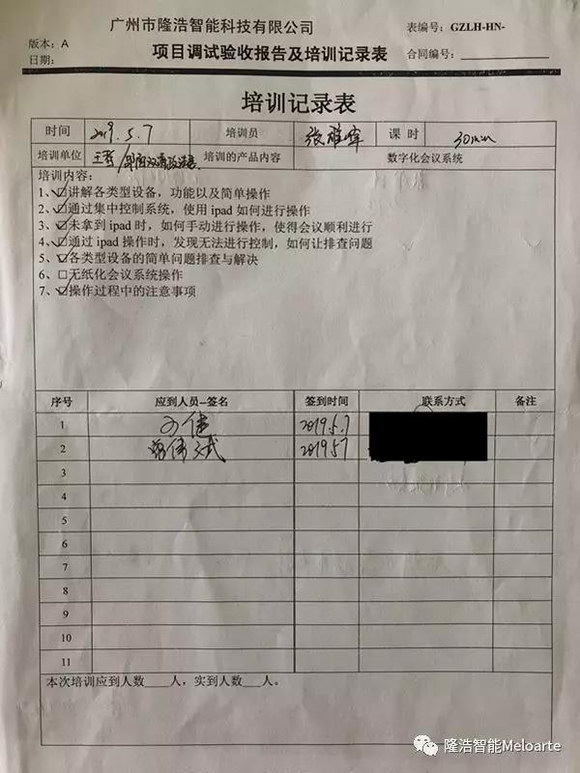 广州市隆浩智能科技有限公司
表编号：GZLH-HN-
版本：A
项目调试验收报告及培训记录表
合同编号：
日期：
培训记录表
时间 2019.5.7 培训员 课时 30min
培训单位 培训的产品内容 数字化会议系统
培训内容：
1、☑讲解各类型设备，功能以及简单操作
2、☑通过集中控制系统，使用 ipad 如何进行操作
3、☑未拿到 ipad 时，如何手动进行操作，使得会议顺利进行
4、☑通过 ipad 操作时，发现无法进行控制，如何让排查问题
5、☑各类型设备的简单问题排查与解决
6、☐无纸化会议系统操作
7、☑操作过程中的注意事项
序号 应到人员–签名 签到时间 联系方式 备注
1 2019.5.7
2 2019.5.7
3
4
5
6
7
8
9
10
11
本次培训应到人数___人，实到人数___人。
隆浩智能Meloarte